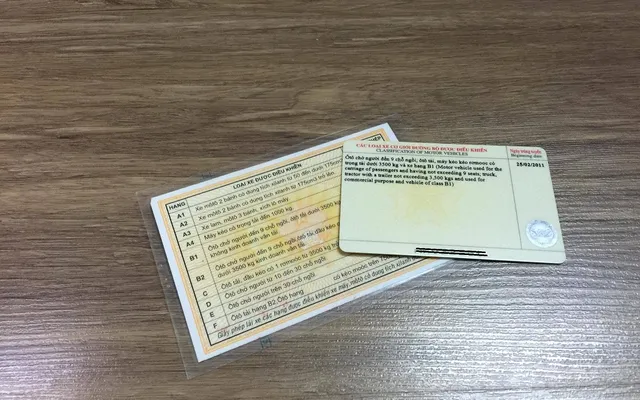 LOẠI XE ĐƯỢC ĐIỀU KHIỂN
HẠNG
A1 Xe môtô 2 bánh có dung tích xilanh từ 50 đến dưới 175cm3
A2 Xe môtô 2 bánh có dung tích xilanh từ 175cm3 trở lên
A3 Xe lam, môtô 3 bánh, xích lô máy
A4 Máy kéo có trọng tải đến 1000 kg
B1 Ôtô chở người đến 9 chỗ ngồi, ôtô tải dưới 3500
không kinh doanh vận tải.
B2 Ôtô chở người đến 9 chỗ ngồi, ôtô tải đầu kéo
dưới 3500kg kinh doanh vận tải.
C Ôtô tải, đầu kéo có 1 rơmoóc từ 3500 kg
D Ôtô chở người từ 10 đến 30 chỗ ngồi
E Ôtô chở người trên 30 chỗ ngồi
F Ôtô tải hạng B2, Ôtô hạng có kéo moóc trên
Giấy phép lái xe các hạng được điều khiển xe máy, môtô có dung tích xilanh
CÁC LOẠI XE CƠ GIỚI ĐƯỜNG BỘ ĐƯỢC ĐIỀU KHIỂN
CLASSIFICATION OF MOTOR VEHICLES
Ngày trúng tuyển
Beginning date
Ôtô chở người đến 9 chỗ ngồi, ôtô tải, máy kéo kéo rơmoóc có
trọng tải dưới 3500 kg và xe hạng B1 (Motor vehicle used for the
carriage of passengers and having not exceeding 9 seats; truck,
tractor with a trailer not exceeding 3,500 kgs and used for
commercial purpose and vehicle of class B1)
25/02/2011